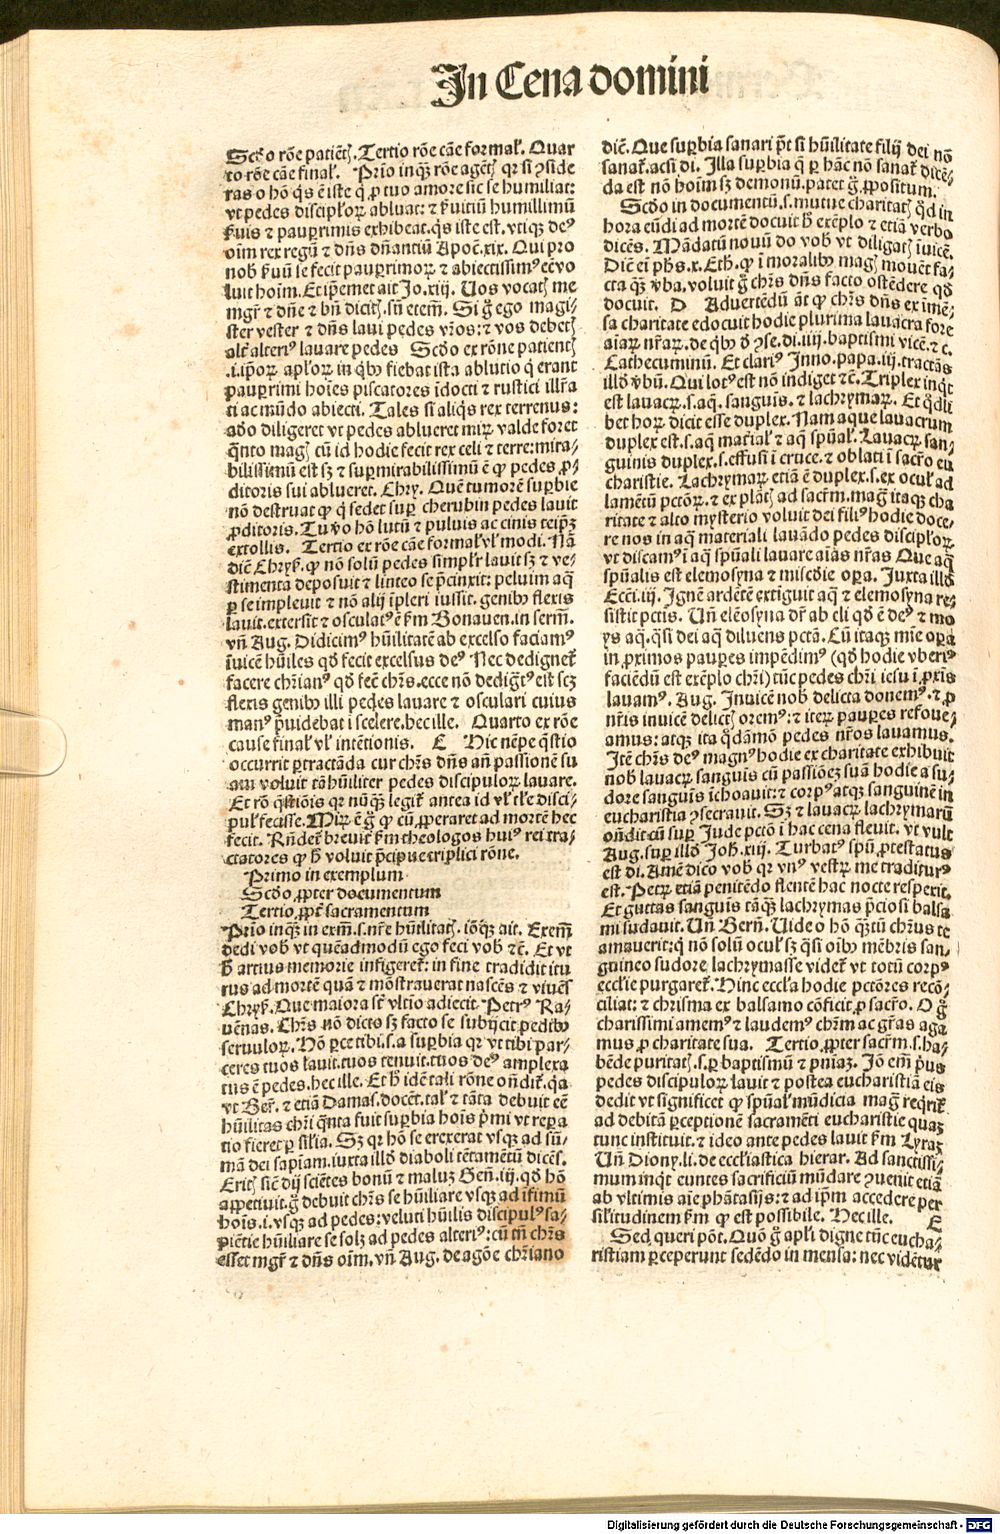 In Cena domini
Scđo rõe patiẽtꝭ. Tertio rõe cãe formal̕. Quar
to rõe cãe final̕. Prĩo inqꝫ rõe agẽtꝭ qꝛ si ꝯside
ras o hõ q̃s ẽ iste q̃ ꝓ tuo amore sic se humiliat:
vt pedes discipl̕oꝝ abluat: ⁊ ẜuitiũ humillimũ
ẜuis ⁊ pauꝑrimis exhibeat. q̃s iste est. vtiqꝫ deꝰ
oĩm rex regũ ⁊ dñs dñantiũ Apoc̃. xix. Qui pro
nob̕ ẜuũ se fecit pauꝑrimoꝝ ⁊ abiectissimꝰ eẽ vo
luit hoĩm. Et ip̃emet ait Jo. xiij. Uos vocatꝭ me
mgr̃ ⁊ dñe ⁊ bñ dicitꝭ. sũ etem̃. Si g̃ ego magi⸗
ster vester ⁊ dñs laui pedes vr̃os: ⁊ vos debetꝭ
alt̕ alteriꝰ lauare pedes Scđo ex rõne patientꝭ
.i. ip̃oꝝ apl̕oꝝ in q̃bꝰ fiebat ista ablutio q̃ erant
pauꝑrimi hoĩes piscatores ĩdocti ⁊ rustici illr̃a
ti ac mũdo abiecti. Tales si aliq̃s rex terrenus:
ađo diligeret vt pedes ablueret miꝝ valde foret
q̃nto magꝭ cũ id hodie fecit rex celi ⁊ terre: mira⸗
bilissimũ est sꝫ ⁊ suꝑmirabilissimũ ẽ ꝙ pedes ꝓ⸗
ditoris sui ablueret. Chry. Quẽ tumorẽ suꝑbie
nõ destruat ꝙ q̃ sedet suꝑ cherubin pedes lauit
ꝓditoris. Tu ṽo hõ lutũ ⁊ puluis ac cinis teip̃ꝫ
extollis. Tertio ex rõe cãe formal̕ vl̕ modi. Nã
diẽ Chryẜ. ꝙ nõ solũ pedes simpl̕r lauit sꝫ ⁊ ve⸗
stimenta deposuit ⁊ linteo se p̃cinxit: peluim aq̃
ꝑ se impleuit ⁊ nõ alij ĩpleri iussit. genibꝰ flexis
lauit. extersit ⁊ osculatꝰ ẽ ẜm Bonauen. in serm̃.
vñ Aug. Didicimꝰ hũilitatẽ ab excelso faciamꝰ
ĩuicẽ hũiles qđ fecit excelsus deꝰ Nec dedignet̃
facere chr̃ianꝰ qđ fec̃ chr̃s. ecce nõ dedigt̃ꝰ eiꝰ scꝫ
flexis genibꝰ illi pedes lauare ⁊ osculari cuius
manꝰ p̃uidebat ĩ scelere. hec ille. Quarto ex rõe
cause final̕ vl̕ intẽtionis. C Hic nẽpe q̃stio
occurrit ꝑtractãda cur chr̃s dñs añ passionẽ su
am voluit tã hũiliter pedes discipuloꝝ lauare.
Et rõ q̃stiõis qꝛ nũqꝫ legit̃ antea id vl̕ tl̕e disci⸗
pul̕ fecisse. Miꝝ ẽ g̃ ꝙ cũ ꝓperaret ad mortẽ hec
fecit. Rñdet̃ breuit̕ ẜm theologos huiꝰ rei tra⸗
ctatores ꝙ h̕ voluit p̃cipue triplici rõne.
Primo in exemplum
Scđo ꝓpter documentum
Tertio ꝓpt̃ sacramentum
Prĩo inqꝫ in exm̃. s. nr̃e hũilitatꝭ. iõqꝫ ait. Exem̃
dedi vob̕ vt queadmodũ ego feci vob̕ ⁊c̃. Et vt
h̕ artius memorie infigeret̃: in fine tradidit itu
rus ad mortẽ quã ⁊ mõstrauerat nascẽs ⁊ viuẽs
Chryẜ. Que maiora st̃ vl̕tio adiecit. Petrꝰ Ra⸗
uẽnas. Chr̃s nõ dicto sꝫ facto se subijcit pedibꝰ
seruuloꝝ. Hõ ꝑce tibi. s. a suꝑbia qꝛ vt tibi par⸗
ceres tuos lauit. tuos tenuit. tuos deꝰ amplexa
tus ẽ pedes. hec ille. Et h̕ idẽ tali rõne oñdit̃. qa
vt Ber̃. ⁊ etiã Damas. docẽt. tal̕ ⁊ tãta debuit eẽ
hũilitas chr̃i q̃nta fuit suꝑbia hoĩs p̃mi vt reꝑa
tio fieret ꝑ sil̕ia. Sꝫ qꝛ hõ se erexerat vsqꝫ ad sũ⸗
mã dei sapĩam. iuxta illđ diaboli tẽtamẽtũ dicẽs.
Eritꝭ sic̃ dij sciẽtes bonũ ⁊ maluꝫ Geñ. iij. qđ hõ
appetiuit. g̃ debuit chr̃s se hũiliare vsqꝫ ad ĩfimũ
hoĩs. i. vsqꝫ ad pedes: veluti hũilis discipulꝰ sa⸗
piẽtie hũiliare se solꝫ ad pedes alteriꝰ: cũ tñ chr̃s
esset mgr̃ ⁊ dñs oĩm. vñ Aug. de agõe chr̃iano
dic̃. Que suꝑbia sanari põt si hũilitate filij dei nõ
sanat̃. acsi di. Illa suꝑbia q̃ ꝑ hãc nõ sanat̃ dicẽ⸗
da est nõ hoĩm sꝫ demonũ. patet g̃ ꝓpositum.
Scđo in documentũ. s. mutue charitatꝭ qđ in
hora eũdi ad mortẽ docuit h̕ exẽplo ⁊ etiã verbo
dicẽs. Mãdatũ nouũ do vob̕ vt diligatꝭ ĩuicẽ.
Dic̃ eĩ ph̃s. x. Eth. ꝙ ĩ moralibꝰ magꝭ mouẽt fa⸗
cta qꝫ ṽba. voluit g̃ chr̃s dñs facto ostẽdere qđ
docuit. D Aduertẽdũ ãt ꝙ chr̃s dñs ex imẽ⸗
sa charitate edocuit hodie plurima lauacra fore
aiaꝝ nr̃aꝝ. de q̃bꝰ đ ꝯse. di. iiij. baptismi vicẽ. ⁊ c.
Cathecuminũ. Et clariꝰ Inno. papa. iij. tractãs
illđ ṽbũ. Qui lotꝰ est nõ indiget ⁊c̃. Triplex inqt
est lauacꝝ. s. aq̃. sanguĩs. ⁊ lachrymaꝝ. Et qđli
bet hoꝝ dicit esse duplex. Nam aque lauacrum
duplex est. s. aq̃ mat̃ial̕ ⁊ aq̃ spũal̕. Lauacꝝ san⸗
guinis duplex. s. effusi ĩ cruce. ⁊ oblati ĩ sacr̃o eu
charistie. Lachrymaꝝ etiã ẽ duplex. s. ex ocul̕ ad
lamẽtũ pctõꝝ. ⁊ ex plãtꝭ ad sacr̃m. mag̃ itaqꝫ cha
ritate ⁊ alto mysterio voluit dei filiꝰ hodie doce⸗
re nos in aq̃ materiali lauãdo pedes discipl̕oꝝ
vt discamꝰ ĩ aq̃ spũali lauare aĩas nr̃as Que aq̃
spũalis est elemosyna ⁊ miscđie oꝑa. Iuxta illđ
Ecc̃i. iij. Ignẽ ardẽtẽ extĩguit aq̃ ⁊ elemosyna re⸗
sistit pctis. Uñ elẽosyna dr̃ ab eli qđ ẽ deꝰ ⁊ mo
ys aq̃. q̃si dei aq̃ diluens pctã. Cũ itaqꝫ mĩe oꝑa
in ꝓximos pauꝑes impẽdimꝰ (qđ hodie vberiꝰ
faciẽdũ est exẽplo chr̃i) tũc pedes chr̃i iesu ĩ ꝓxĩs
lauamꝰ. Aug. Inuicẽ nob̕ delicta donemꝰ. ⁊ ꝓ
nr̃is inuicẽ delictꝭ oremꝰ: ⁊ iteꝝ pauꝑes refoue⸗
amus: atqꝫ ita q̃dãmõ pedes nr̃os lauamus.
Itẽ chr̃s deꝰ magnꝰ hodie ex charitate exhibuit
nob̕ lauacꝝ sanguĩs cũ passiõeꝫ suã hodie a su⸗
dore sanguĩs ĩchoauit: ⁊ corpꝰ atqꝫ sanguinẽ in
eucharistia ꝯsecrauit. Sꝫ ⁊ lauacꝝ lachrymarũ
oñdit cũ suꝑ Jude pctõ ĩ hac cena fleuit. vt vult
Aug. suꝑ illđ Joh̕. xiij. Turbatꝰ spũ ꝓtestatus
est di. Amẽ dico vob̕ qꝛ vnꝰ vestꝝ me traditurꝰ
est. Petꝝ etiã penitẽdo flentẽ hac nocte respexit.
Et guttas sanguis tãqꝫ lachrymas p̃ciosi balsa
mi sudauit. Uñ Berñ. Uide o hõ qꝫtũ chr̃us te
amauerit: q̃ nõ solũ ocul̕ sꝫ q̃si oĩbꝰ mẽbris san⸗
guineo sudore lachrymasse videt̃ vt totũ corpꝰ
eccl̕ie purgaret̃. Hinc eccl̕a hodie pctõres recõ⸗
ciliat: ⁊ chrisma ex balsamo cõficit ꝓ sacr̃o. O g̃
charissimi amemꝰ ⁊ laudemꝰ chr̃m ac gr̃as aga
mus ꝓ charitate sua. Tertio ꝓpter sacr̃m. s. ha⸗
bẽde puritatꝭ. s. ꝑ baptismũ ⁊ pñiaꝫ. Iõ em̃ p̃us
pedes discipuloꝝ lauit ⁊ postea eucharistiã eis
dedit vt significet ꝙ spũal̕ mũdicia mag̃ reqrit̃
ad debitã ꝑceptionẽ sacramẽti eucharistie quaꝫ
tunc instituit. ⁊ ideo ante pedes lauit ẜm Lyraꝫ
Uñ Diony. li. de eccl̕iastica hierar. Ad sanctissi⸗
mum inqt euntes sacrificiũ mũdare ꝯuenit etiã
ab vltimis aĩe phãtasijs: ⁊ ad ip̃m accedere per
sil̕itudinem ẜm ꝙ est possibile. Hec ille. E
Sed queri põt. Quõ g̃ apl̕i digne tũc eucha⸗
ristiam ꝑceperunt sedẽdo in mensa: nec vidẽtur
Digitalisierung gefördert durch die Deutsche Forschungsgemeinschaft - DFG